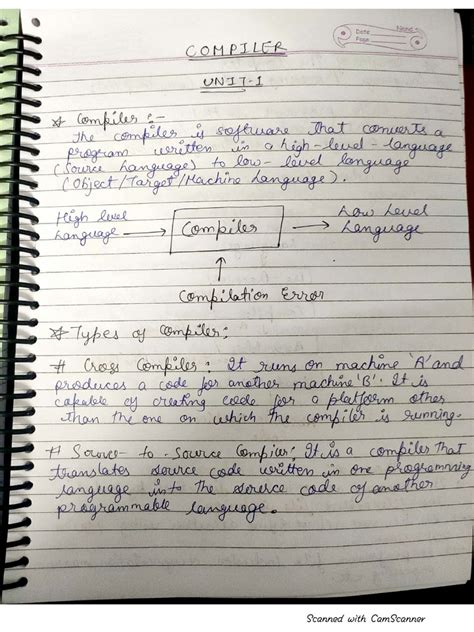 Date
Page
COMPILER
UNIT-1
* Compiler :-
The compiler is software that converts a
program written in a high-level-language
(Source Language) to low-level language
(Object/Target/Machine Language).
High level Language → Compiler → Low Level Language
↑
Compilation Error
* Types of Compiler:
# Cross Compiler: It runs on machine 'A' and
produces a code for another machine 'B'. It is
capable of creating code for a platform other
than the one on which the compiler is running.
# Source-to-Source Compiler: It is a compiler that
translates source code written in one programming
language into the source code of another
programmable language.
Scanned with CamScanner